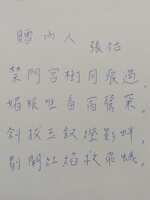 贈內人
張祜
禁門宮樹月痕過，
媚眼唯看宿鷺窠。
斜拔玉釵燈影畔，
剔開紅焰救飛蛾。